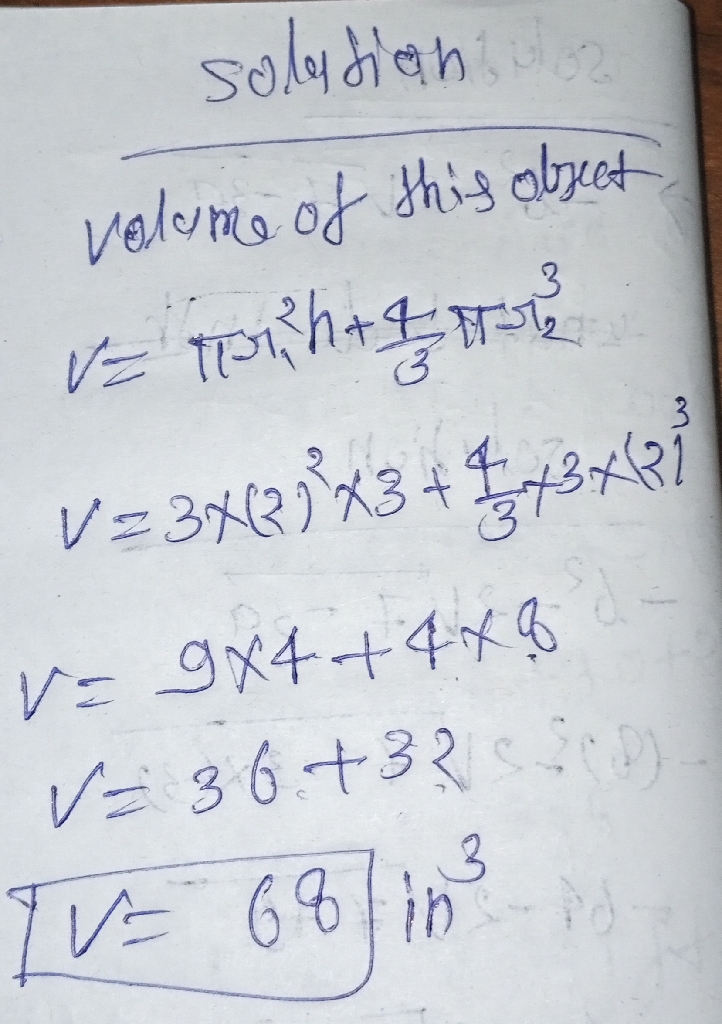 solution
volume of this object
V = πr₁²h + 4/3 πr₂³
V = 3×(2)²×3 + 4/3×3×(2)³
V = 9×4 + 4×8
V = 36 + 32
V = 68 in³